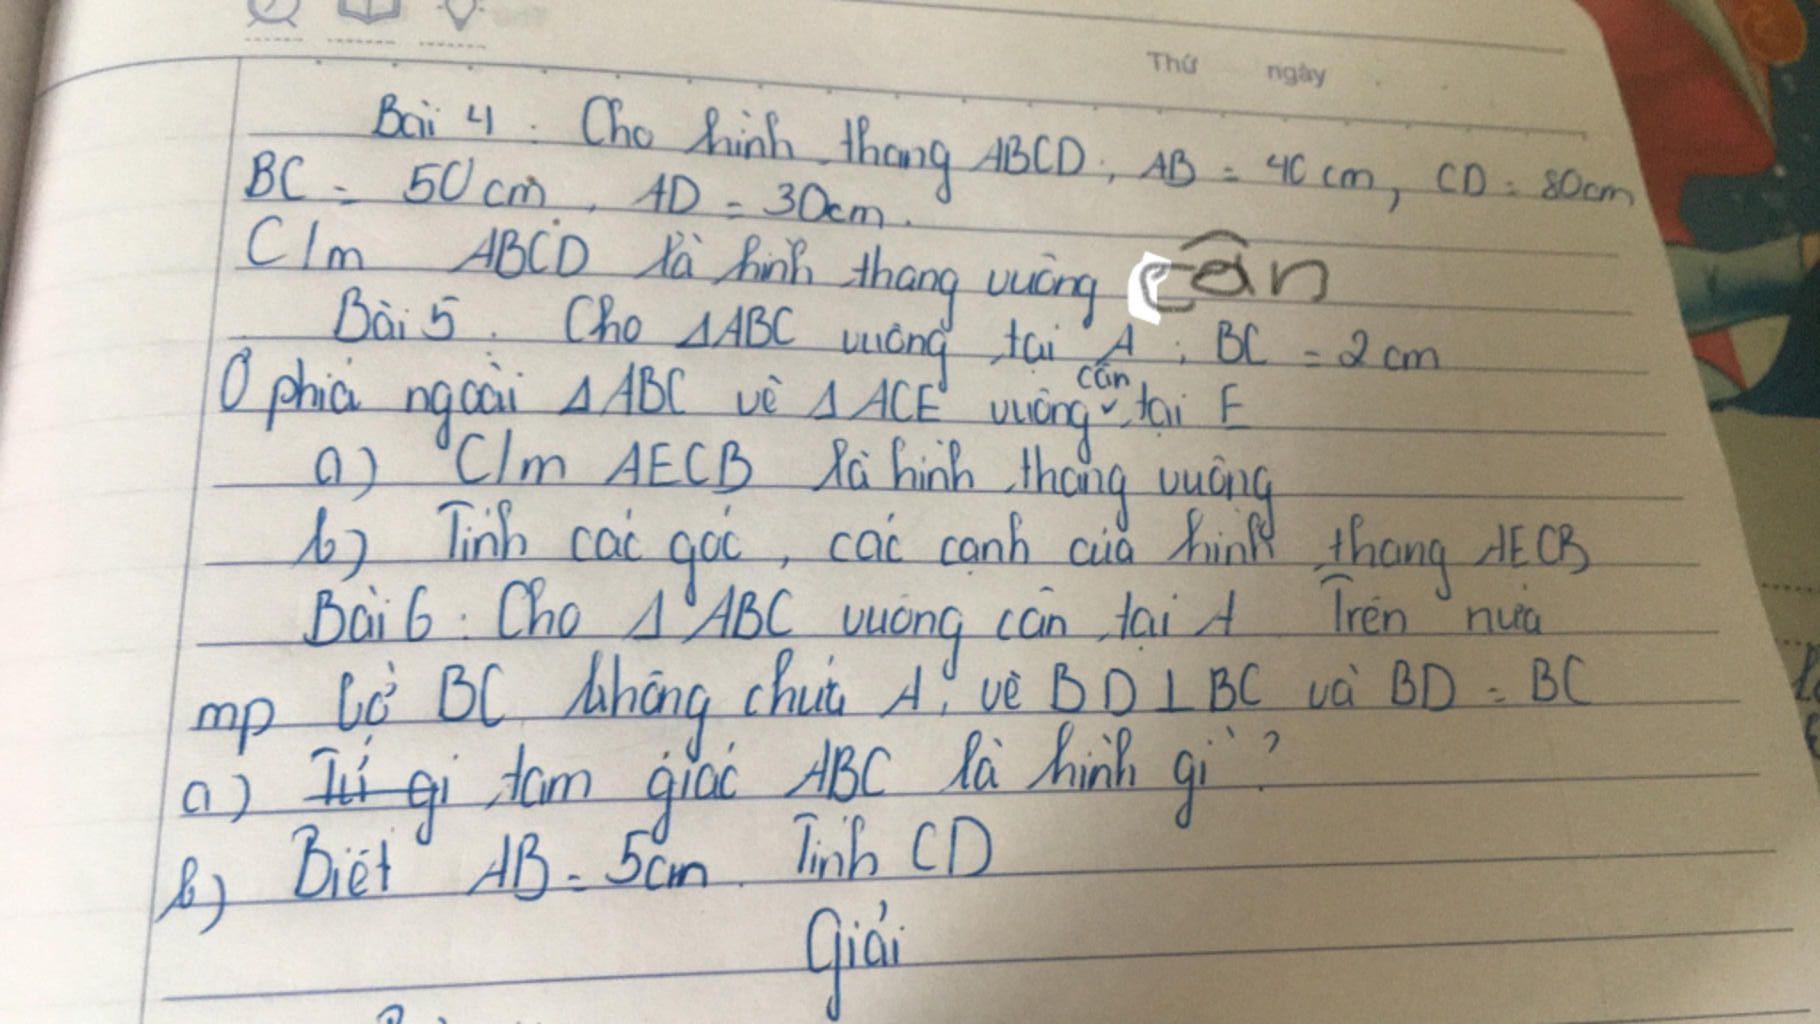 Thứ ngày
Bài 4. Cho hình thang ABCD, AB = 40 cm, CD = 80cm
BC = 50 cm, AD = 30cm.
C/m ABCD là hình thang vuông cân
Bài 5. Cho ΔABC vuông tại A, BC = 2 cm
Ở phiá ngoài ΔABC vẽ ΔACE vuông cân tại E
a) C/m AECB là hình thang vuông
b) Tính các góc, các cạnh của hình thang AECB
Bài 6: Cho ΔABC vuông cân tại A Trên nửa
mp bờ BC không chứa A, vẽ BD ⊥ BC và BD = BC
a) Tứ gi tam giác ABC là hình gì?
b) Biết AB = 5cm. Tính CD
Giải